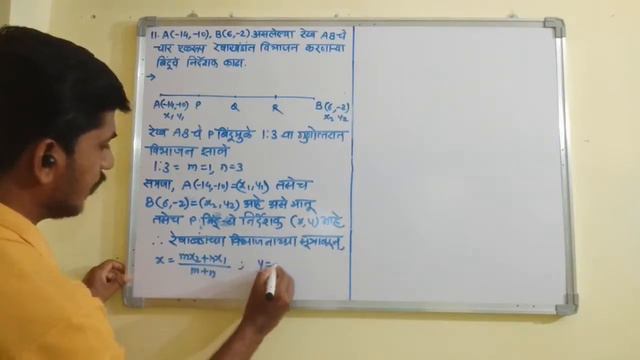 11. A(-14,-10), B(6,-2) असलेल्या रेख AB चे
चार एकरूप रेषाखंडांत विभाजन करणाऱ्या
बिंदूंचे निर्देशक काढा.
→
A(-14,-10) P Q R B(6,-2)
x₁ y₁ x₂ y₂
रेख AB चे P बिंदूमुळे 1:3 या गुणोत्तरात
विभाजन झाले
1:3 = m=1, n=3
समजा, A(-14,-10)=(x₁,y₁) तसेच
B(6,-2)=(x₂,y₂) आहे असे मानू
तसेच P बिंदूचे निर्देशक (x,y) आहे
∴ रेषाखंडाच्या विभाजनाच्या सूत्रावरून,
x = mx₂+nx₁ / m+n ; y=